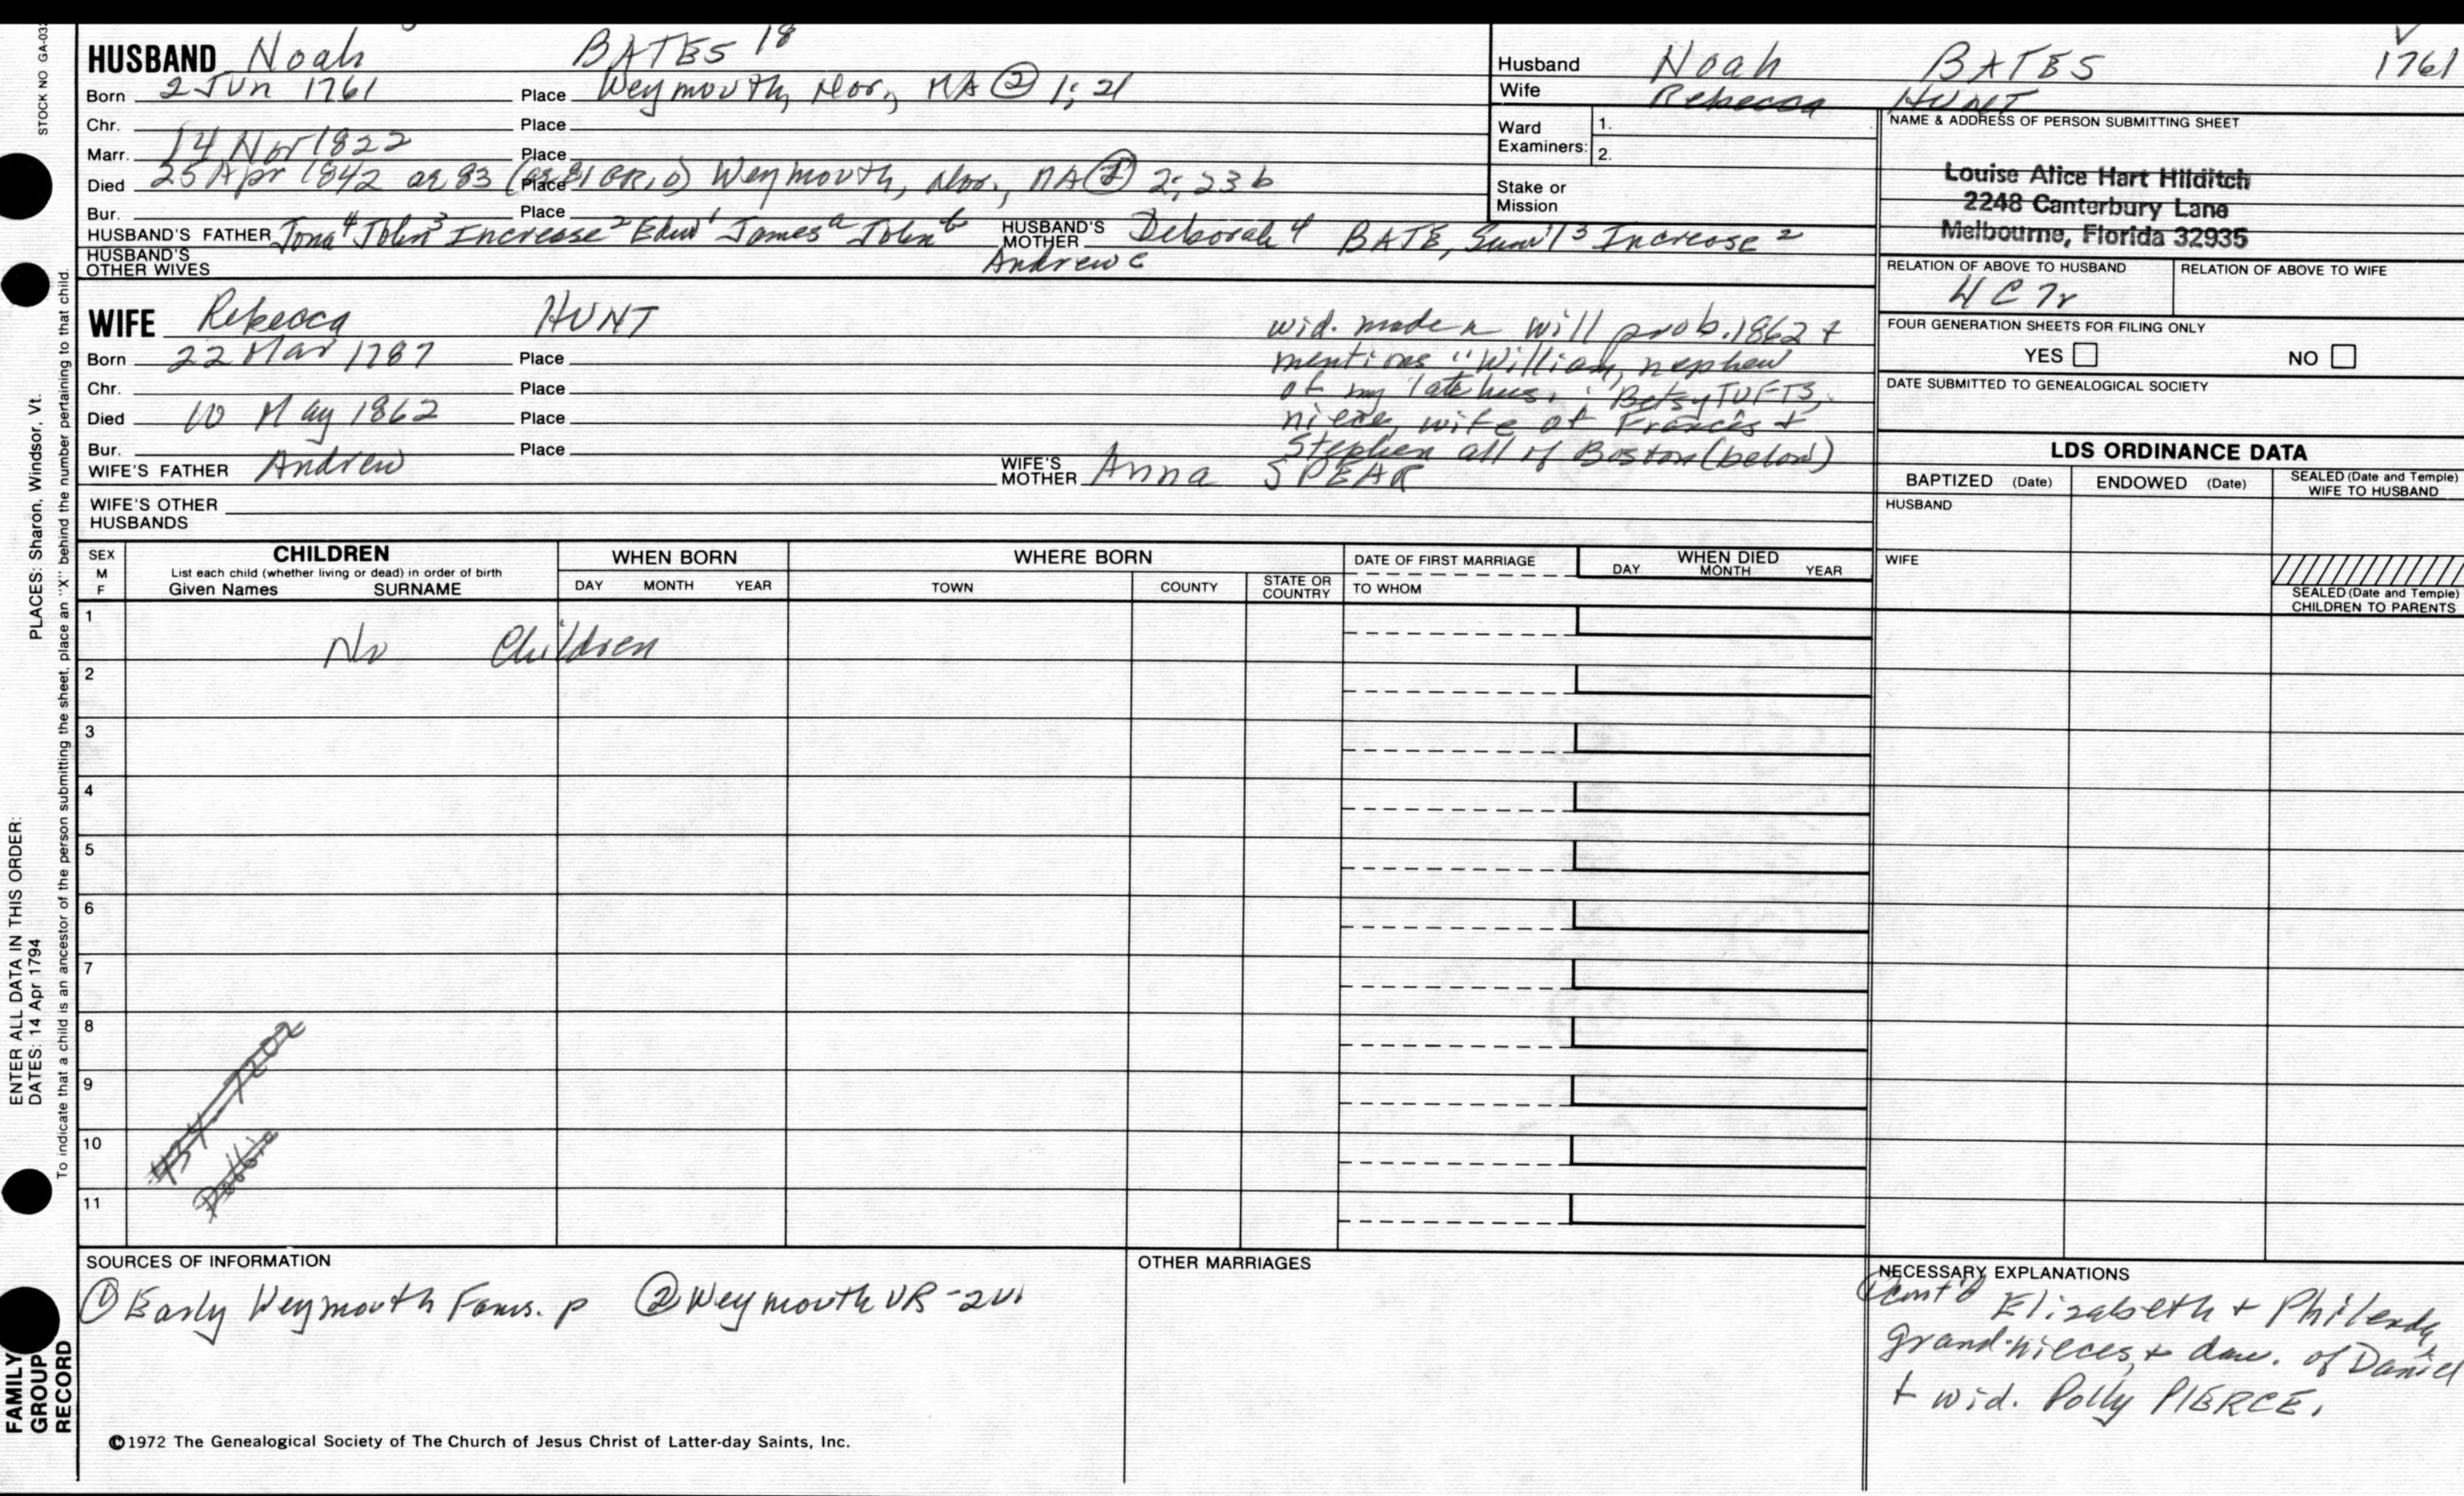 STOCK NO GA-03
HUSBAND Noah BATES 18
Born 2 Jun 1761 Place Weymouth, Nor, MA ② 1; 21
Chr. Place
Marr. 14 Nov 1822 Place
Died 25 Apr 1842 ae 83 (ae 81 GR,1) Place Weymouth, Nor., MA ② 2; 23 b
Bur. Place
HUSBAND'S FATHER Jona 4 John 3 Increase 2 Edw 1 James a John b HUSBAND'S MOTHER Deborah 4 BATE, Sam'l 3 Increase 2
Andrew c
HUSBAND'S OTHER WIVES
WIFE Rebecca HUNT
Born 22 Mar 1787 Place
Chr. Place
Died 10 May 1862 Place
Bur. Place
wid. made a will prob. 1862 +
mentions "William, nephew
of my late hus., "Betsy TUFTS,
niece, wife of Francis +
Stephen all of Boston (below)
WIFE'S FATHER Andrew WIFE'S MOTHER Anna SPEAR
WIFE'S OTHER HUSBANDS
Husband Noah BATES 1761
Wife Rebecca HUNT
Ward Examiners: 1.
2.
Stake or Mission
NAME & ADDRESS OF PERSON SUBMITTING SHEET
Louise Alice Hart Hilditch
2248 Canterbury Lane
Melbourne, Florida 32935
RELATION OF ABOVE TO HUSBAND RELATION OF ABOVE TO WIFE
4 C 7r
FOUR GENERATION SHEETS FOR FILING ONLY
YES NO
DATE SUBMITTED TO GENEALOGICAL SOCIETY
LDS ORDINANCE DATA
BAPTIZED (Date) ENDOWED (Date) SEALED (Date and Temple) WIFE TO HUSBAND
HUSBAND
WIFE
SEALED (Date and Temple) CHILDREN TO PARENTS
SEX M F CHILDREN WHEN BORN WHERE BORN DATE OF FIRST MARRIAGE WHEN DIED
List each child (whether living or dead) in order of birth
Given Names SURNAME DAY MONTH YEAR TOWN COUNTY STATE OR COUNTRY TO WHOM DAY MONTH YEAR
1 No Children
2
3
4
5
6
7
8
9
10
11
SOURCES OF INFORMATION
① Early Weymouth Fams. p ② Weymouth VR - 2v.
OTHER MARRIAGES
NECESSARY EXPLANATIONS
Cont'd Elizabeth +
grand-nieces, + dau. of Daniel
+ wid. Polly PIERCE.
©1972 The Genealogical Society of The Church of Jesus Christ of Latter-day Saints, Inc.
FAMILY GROUP RECORD
ENTER ALL DATA IN THIS ORDER:
DATES: 14 Apr 1794 PLACES: Sharon, Windsor, Vt.
To indicate that a child is an ancestor of the person submitting the sheet, place an "X" behind the number pertaining to that child.